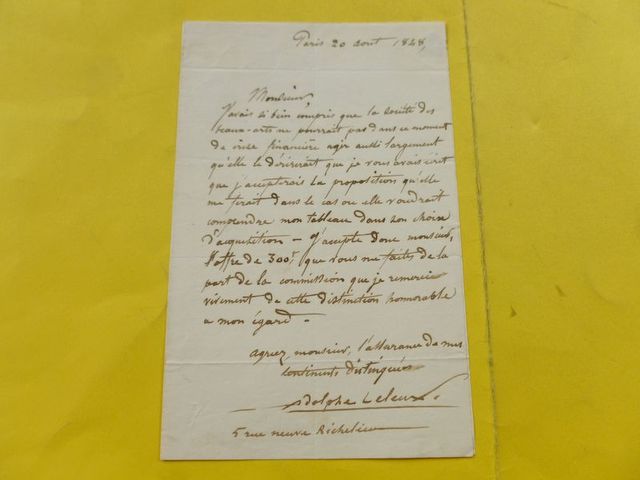 Paris 20 aout 1848,
Monsieur,
J'avais si bien compris que la société des
beaux-arts ne pourrait pas dans ce moment
de crise financière agir aussi largement
qu'elle le désirerait que je vous avais écrit
que j'accepterais la proposition qu'elle
me ferait dans le cas ou elle voudrait
comprendre mon tableau dans son choix
d'acquisition – J'accepte donc monsieur,
l'offre de 300f que vous me faites de la
part de la commission que je remercie
vivement de cette distinction honorable
a mon égard –
agréez, monsieur, l'assurance de mes
sentiments distingués
Adolphe Leleux
5 rue neuve Richelieu